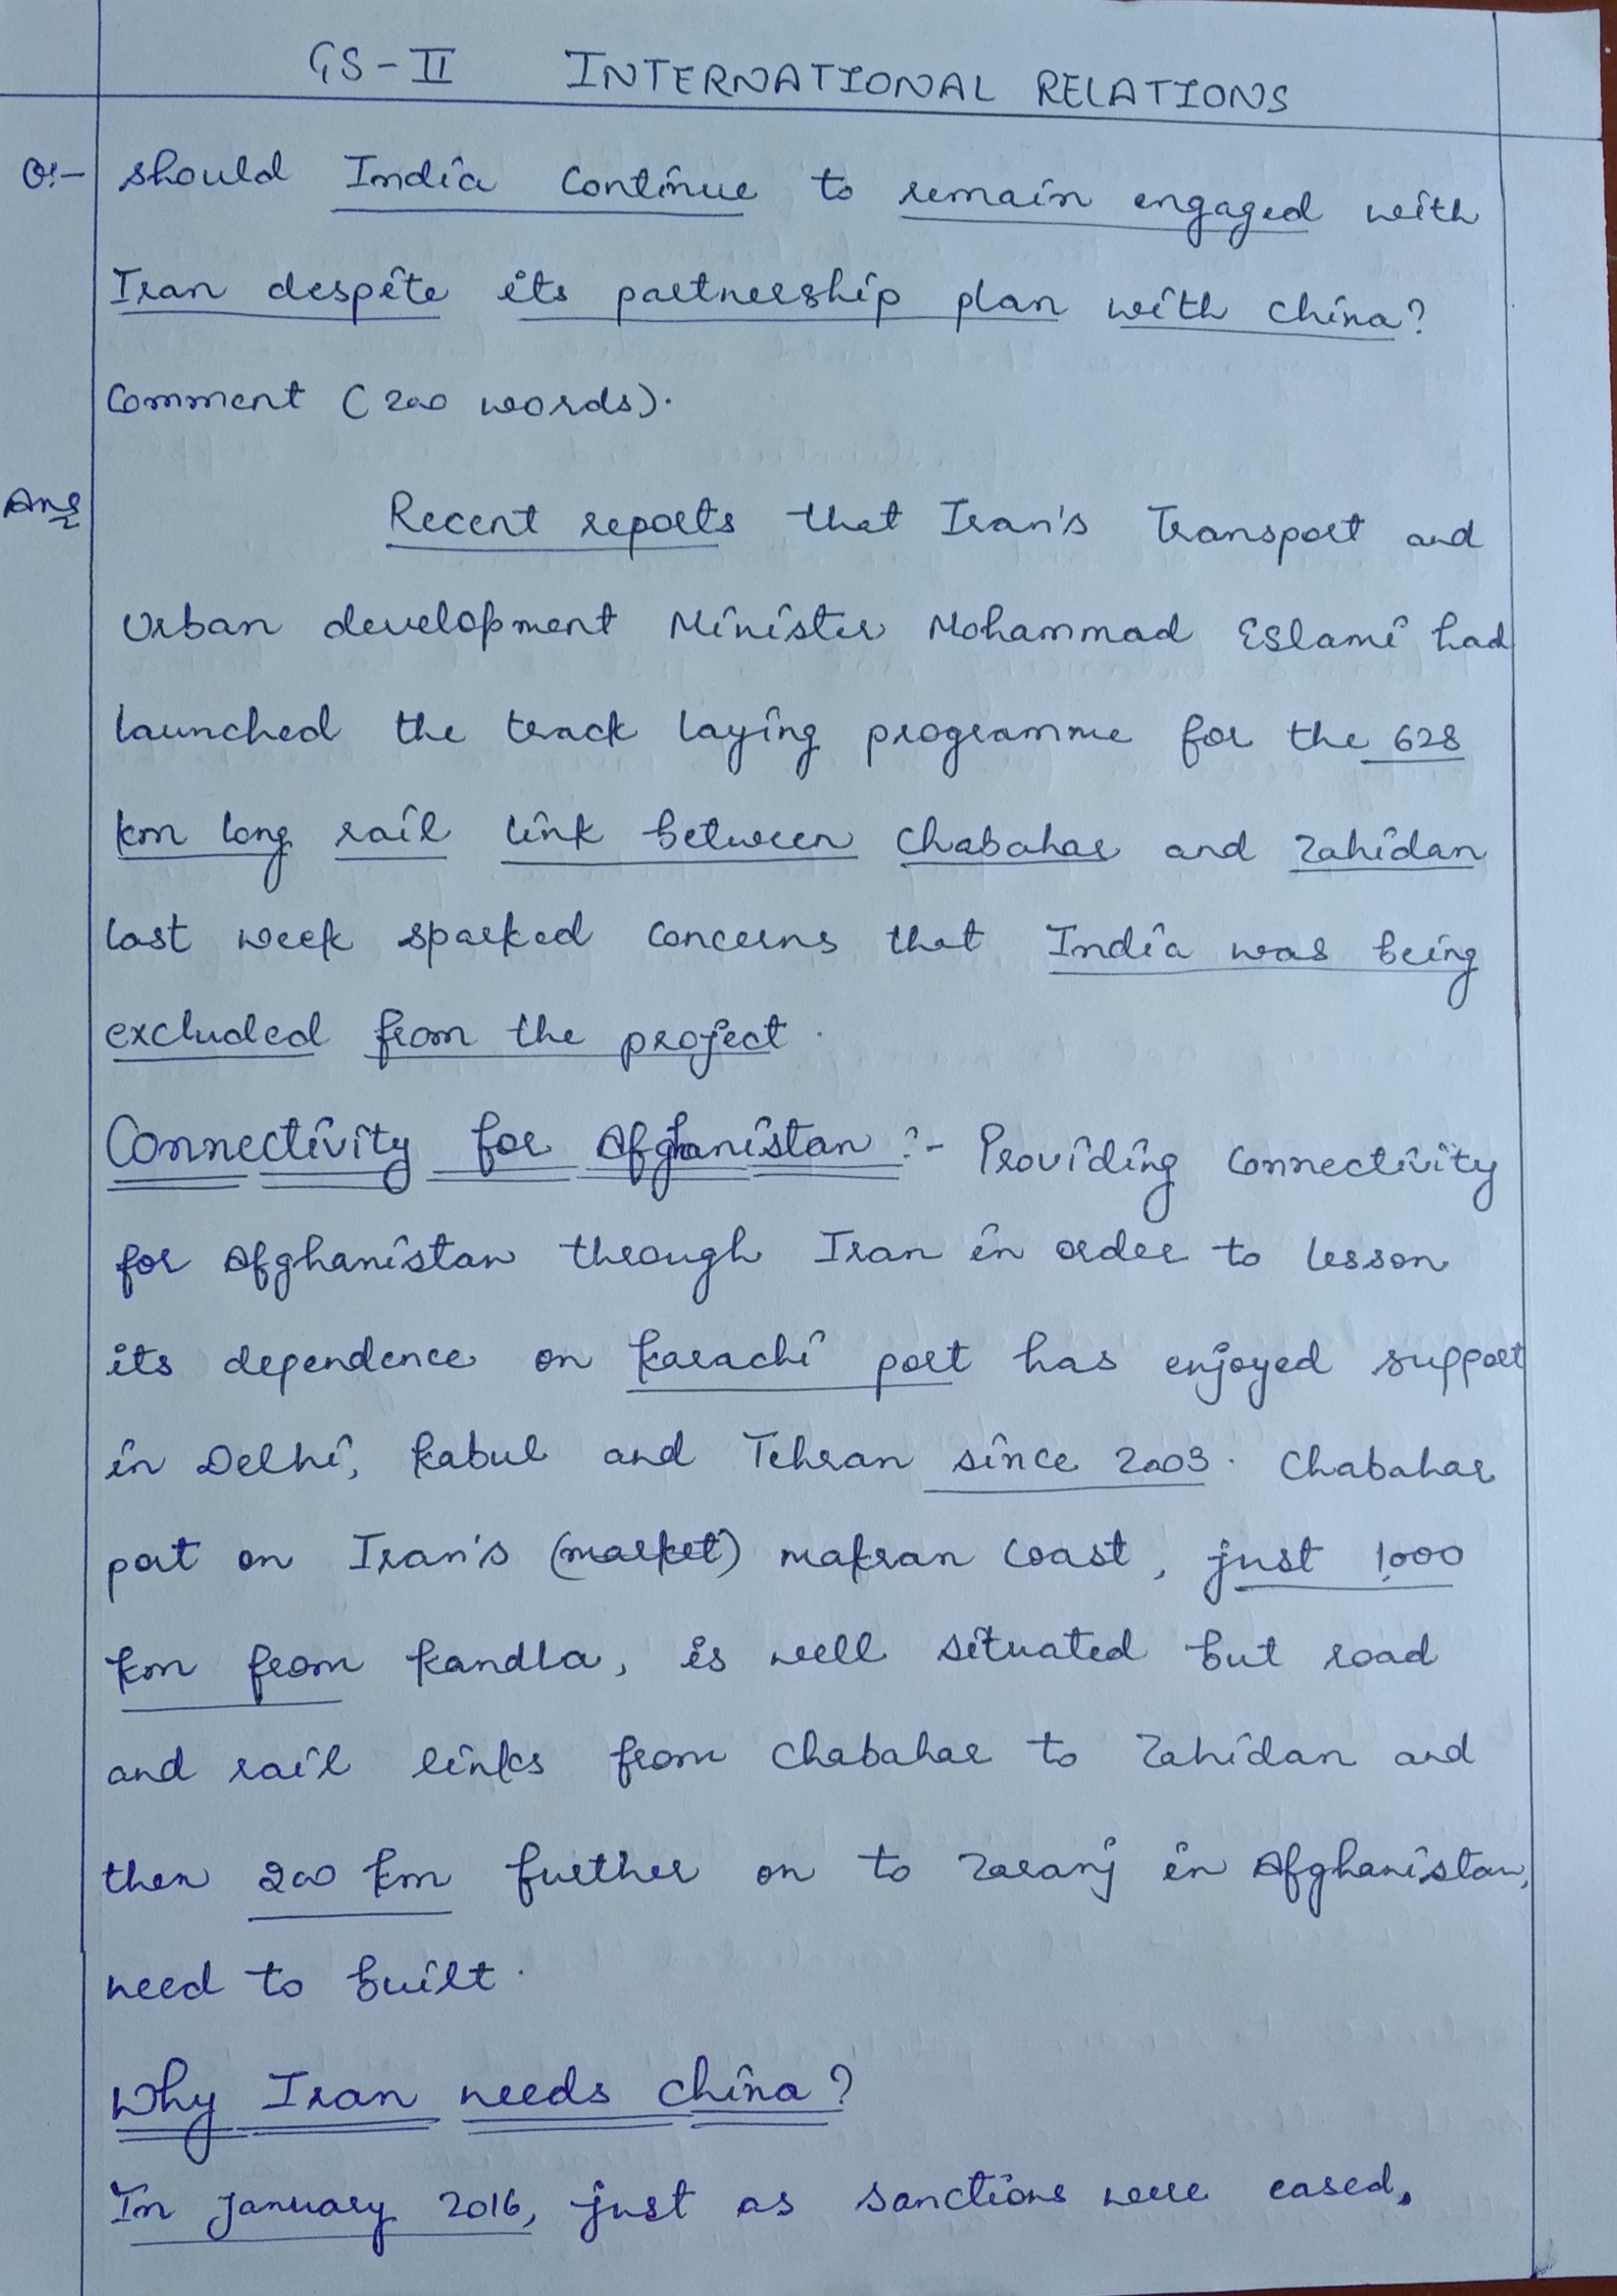 GS-II INTERNATIONAL RELATIONS
Q:- should India continue to remain engaged with
Iran despite its partnership plan with China?
Comment (200 words).
Ans Recent reports that Iran's Transport and
Urban development Minister Mohammad Eslami had
launched the track laying programme for the 628
km long rail link between Chabahar and Zahidan
last week sparked concerns that India was being
excluded from the project.
Connectivity for Afghanistan :- Providing connectivity
for Afghanistan through Iran in order to lesson
its dependence on Karachi port has enjoyed support
in Delhi, Kabul and Tehran since 2003. Chabahar
port on Iran's (market) makran coast, just 1,000
km from Kandla, is well situated but road
and rail links from Chabahar to Zahidan and
then 200 km further on to Zaranj in Afghanistan,
need to built.
Why Iran needs China?
In January 2016, just as sanctions were eased,